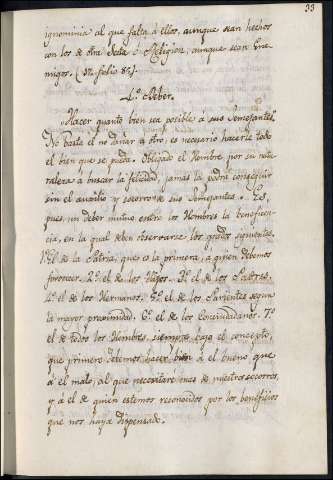 33
ignominia al que falta á ellos, aunque sean hechos
con los de otra Secta ó Religion, aunque sean Ene-
migos. (Yd. folio 85).
4.º Deber.
Hacer quanto bien sea posible á sus Semejantes.
No basta el no dañar á otro, es necesario hacerle todo
el bien que se pueda. Obligado el Hombre por su natu-
raleza á buscar la felicidad, jamas la podra conseguir
sin el auxilio y socorro de sus Semejantes. Es,
pues, un deber mutuo entre los Hombres la beneficen-
cia, en la qual deben observarse los grados siguientes.
1.º El de la Patria, que es la primera, a quien debemos
favorecer. 2.º el de los Hijos. 3.º el de los Padres.
4.º el de los Hermanos. 5.º el de los Parientes segun
la mayor proximidad. 6.º el de los Conciudadanos. 7.º
el de todos los Hombres, siempre bajo el concepto,
que primero debemos hacer bien á el bueno que
á el malo, al que necesitare mas de nuestros socorros,
y á el de quien estemos reconocidos por los beneficios
que nos haya dispensado.